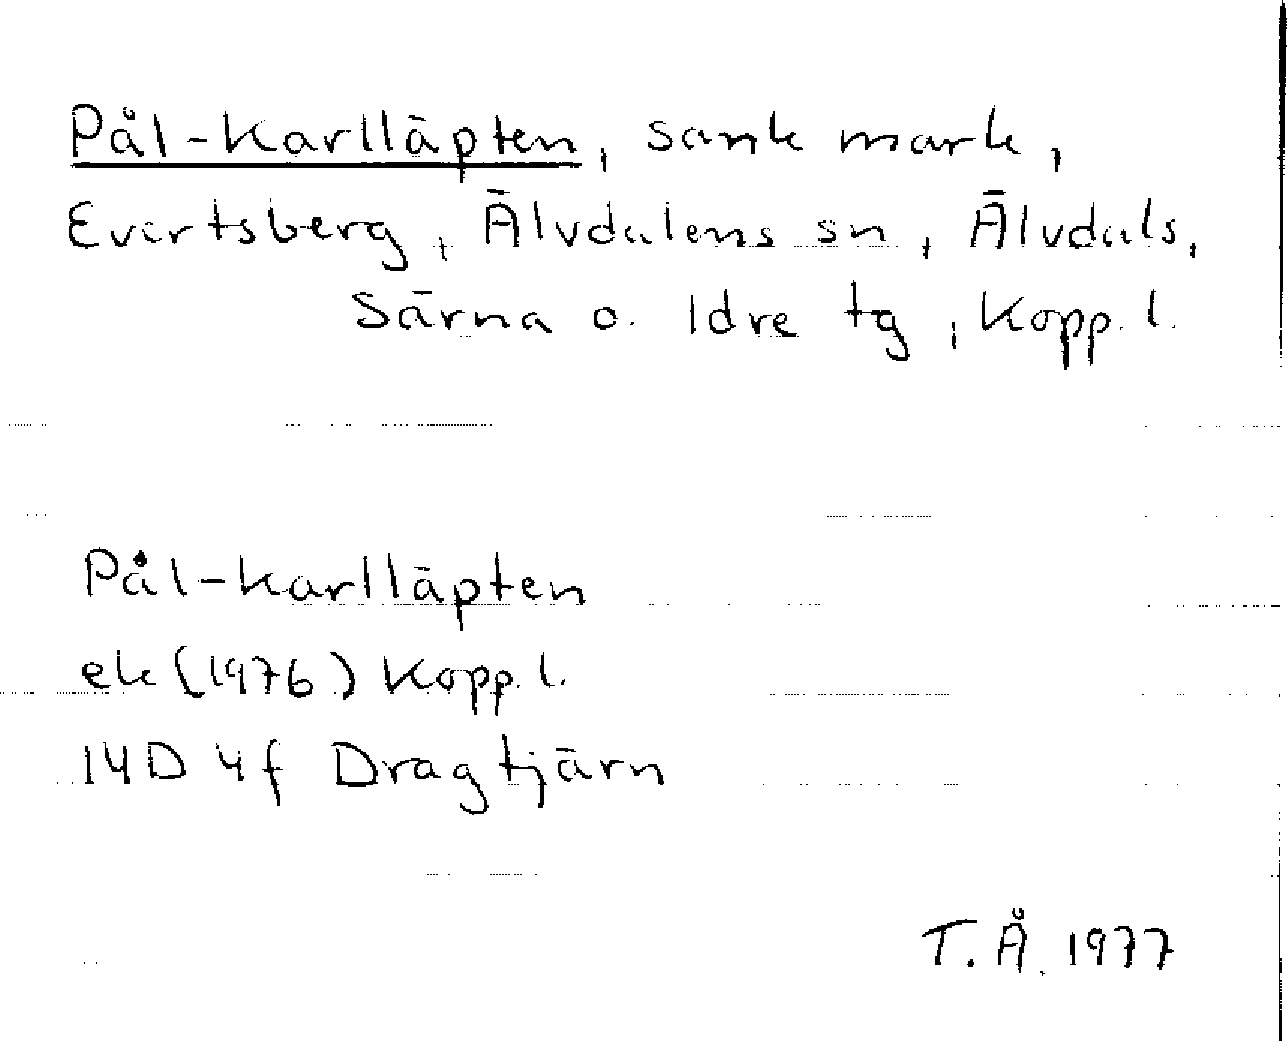 Pål-Karlläpten, sank mark,
Evertsberg, Älvdalens sn, Älvdals,
Särna o. Idre tg, Kopp. l.
Pål-Karlläpten
ek (1976) Kopp. l.
14D 4f Dragtjärn
T. Å. 1977